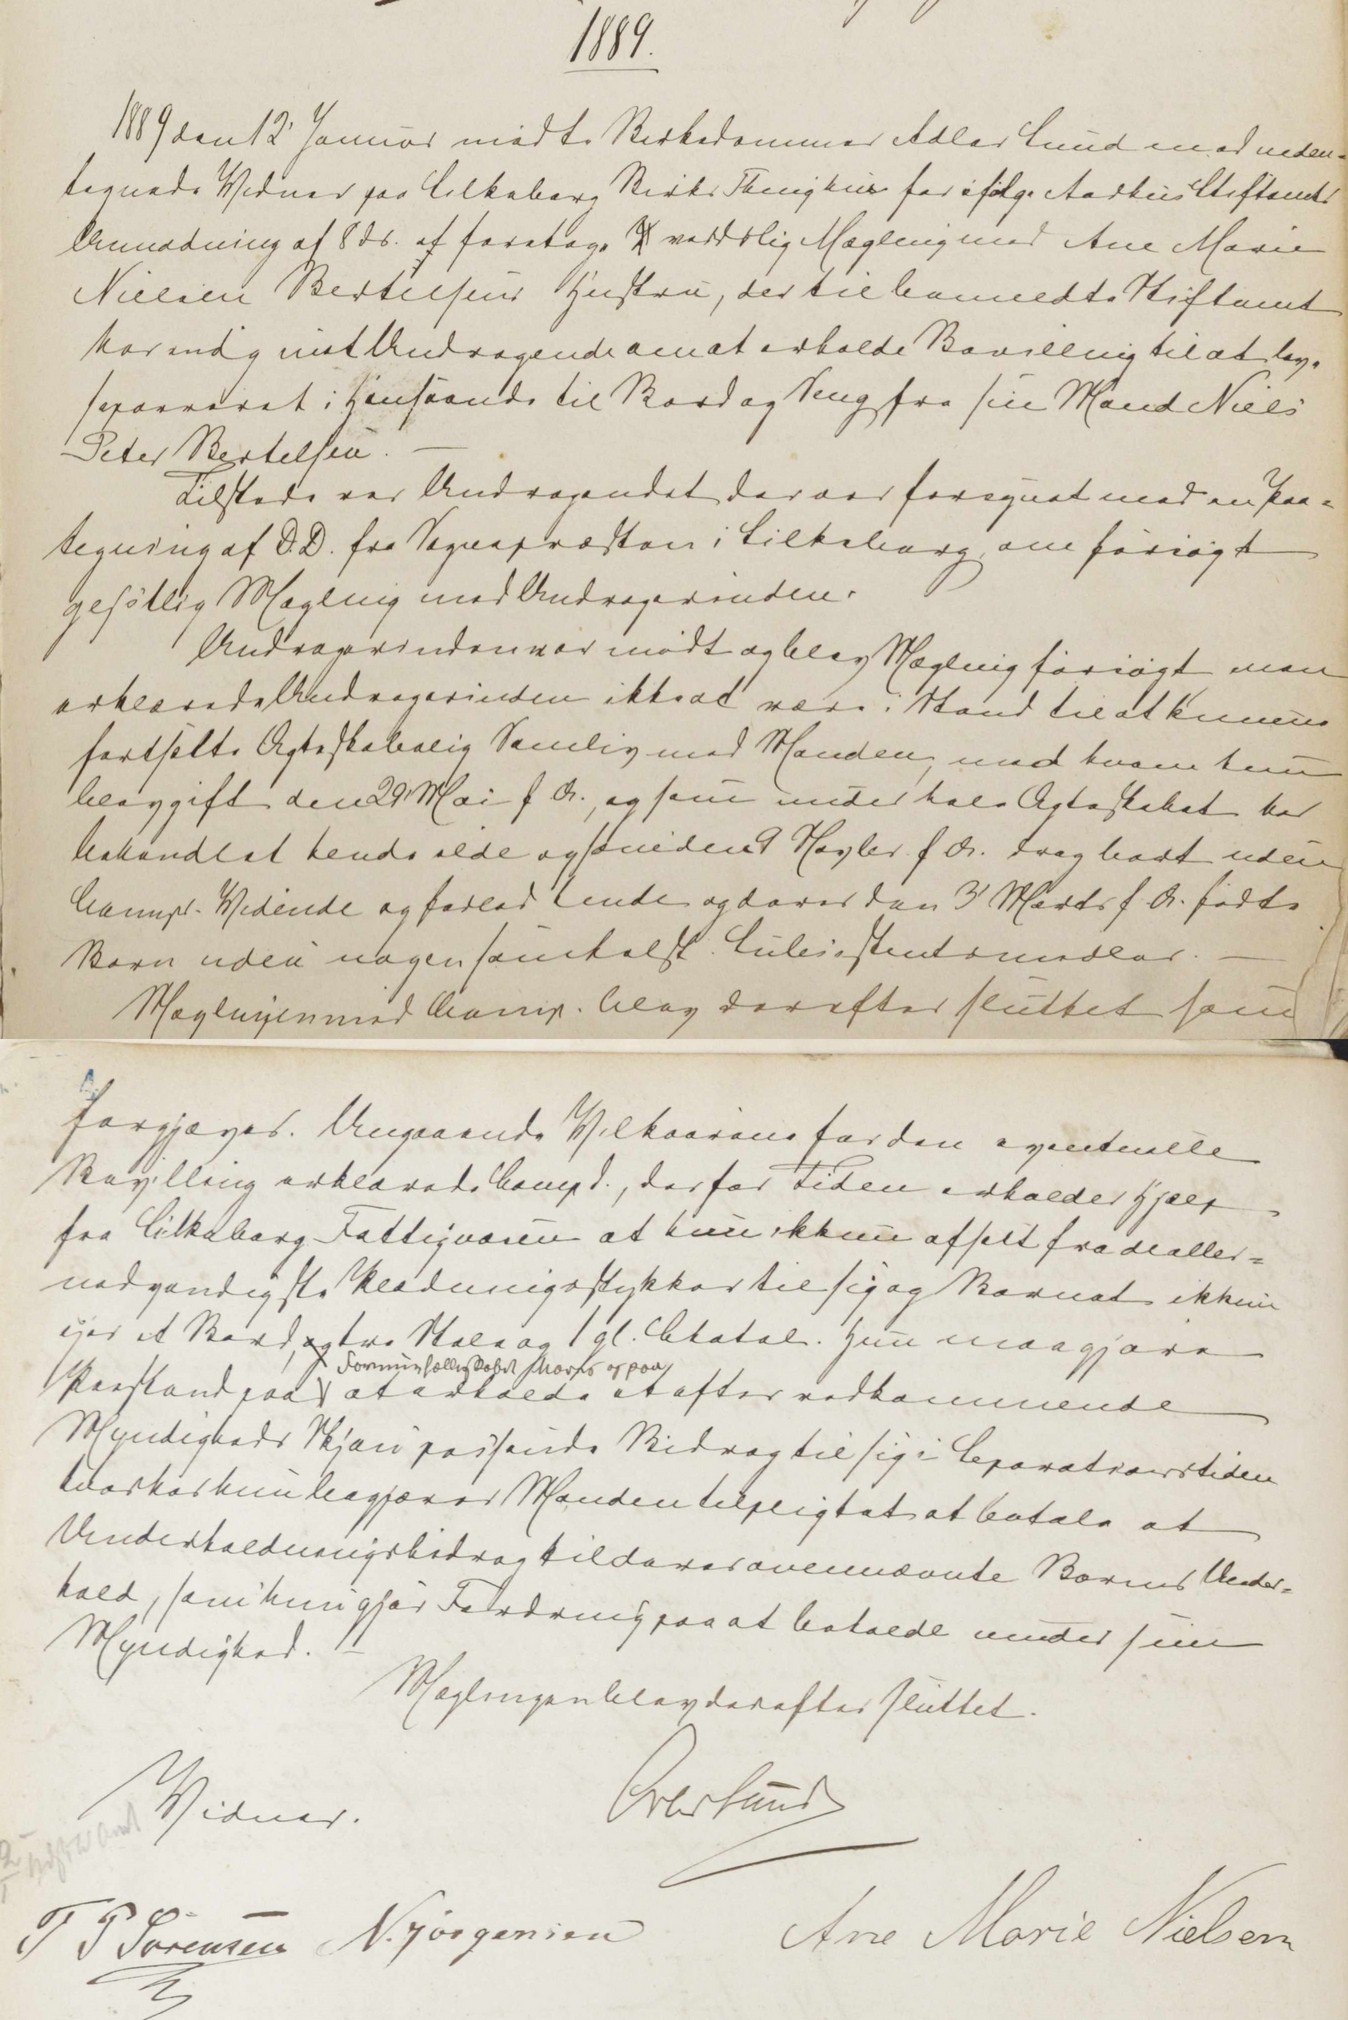 1889.
1889 den 12' Januar mødte Birkedommer Adler Lund med neden-
tegnede Vidner paa Silkeborg Birks Thinghuus for ifølge Aarhus Stiftamts
Anmodning af 8 ds. at foretage verdslig Mægling med Ane Marie
Nielsen Bertelsens Hustru, der til bemeldte Stiftamt
har indgivet Andragende om at erholde Bevilling til at leve
separeret i Henseende til Bord og Seng fra sin Mand Niels
Peter Bertelsen. —
Tilstede var Andragendet der var forsynet med en Paa-
tegning af D.D. fra Sognepræsten i Silkeborg om forsøgt
gejstlig Mægling med Andragerinden.
Andragerinden var mødt og blev Mægling forsøgt men
erklærede Andragerinden ikke at være i Stand til at kunne
fortsætte Ægteskabelig Samliv med Manden, med hvem hun
blev gift den 29' Mai f A., og som under hele Ægteskabet har
behandlet hende ilde og som den 9 Novbr. f A. drog bort uden
Comps. Vidende og forlod hende og deres den 3' Marts f A. fødte
Barn uden nogensomhelst Subsistentsmidler. —
Mæglingen med Comp. blev derefter sluttet som
forgjæves. Angaaende Vilkaarene for den eventuelle
Bevilling erklærede Comp., der for Tiden erholder Hjælp
fra Silkeborg Fattigvæsen at hun ikkun afset fra de aller-
nødvendigste Klædningsstykker til sig og Barnet ikkun
ejer et Bord, tre Stole og 1 gl. Chatol. Hun maa gjøre
Formuefællesskabet hæves og paa
Paastand paa at erholde et efter vedkommende
Myndigheds Skjøn passende Bidrag til sig i Separationstiden
hvorhos hun begjærer Manden tilpligtet at betale et
Underholdningsbidrag til deres ovennævnte Barns Under-
hold, som hun gjør Fordring paa at beholde under sin
Myndighed. —
Mæglingen blev derefter sluttet.
Vidner.
T P Sørensen N. Jørgensen
Ane Marie Nielsen